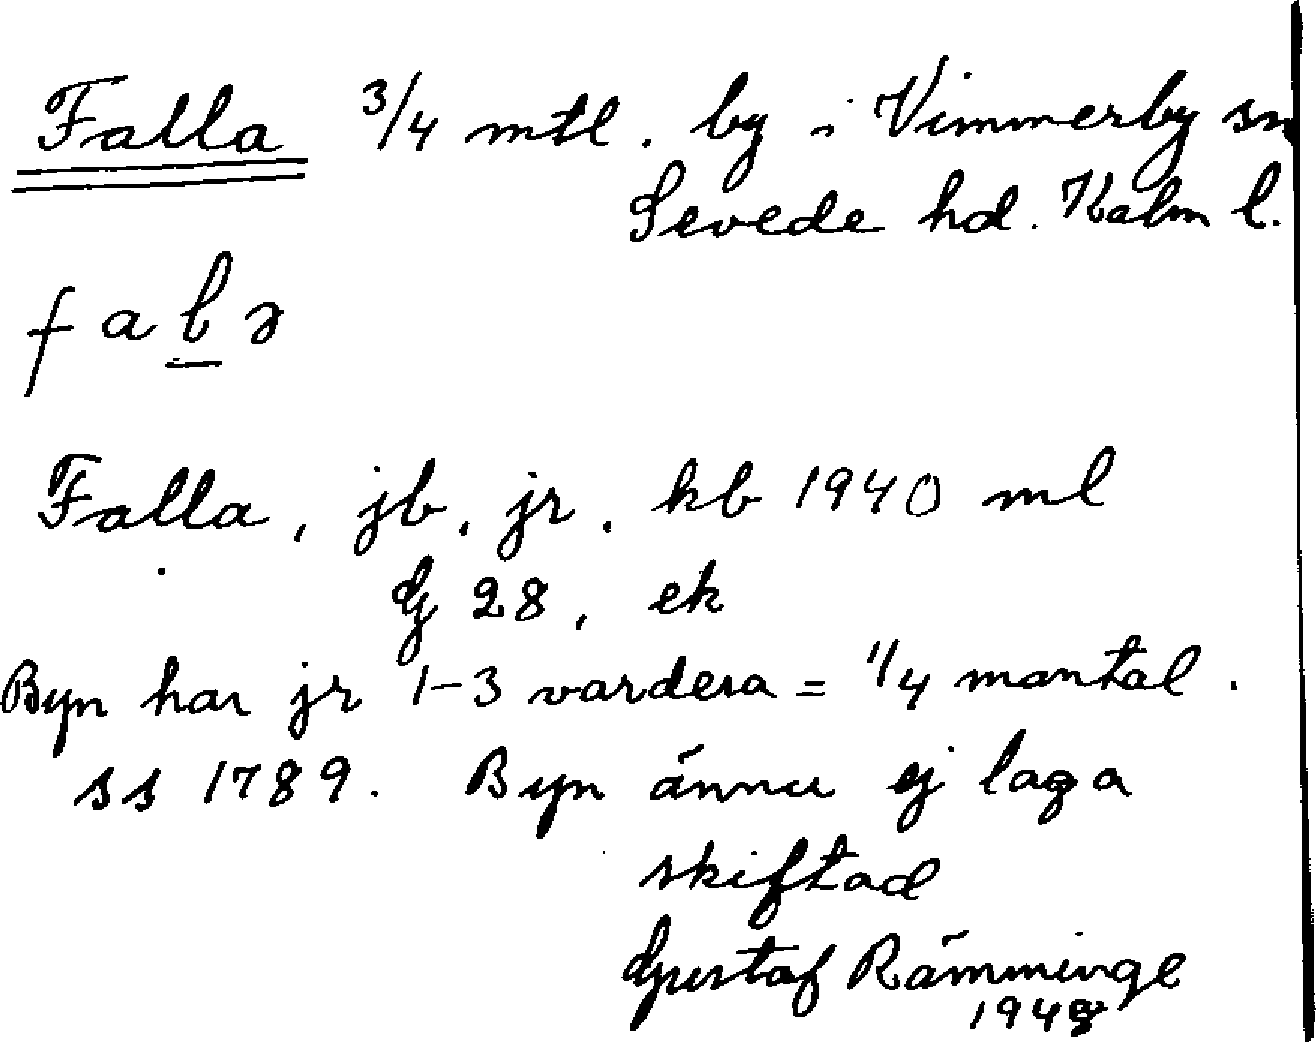 Falla 3/4 mtl. by i Vimmerby sn
Sevede hd. Kalm l.
f a l ə
Falla, jb, jr. kb 1940 ml
G 28, ek
Byn har jr 1-3 vardera = 1/4 mantal.
ss 1789. Byn ännu ej laga
skiftad
Gustaf Rämminge